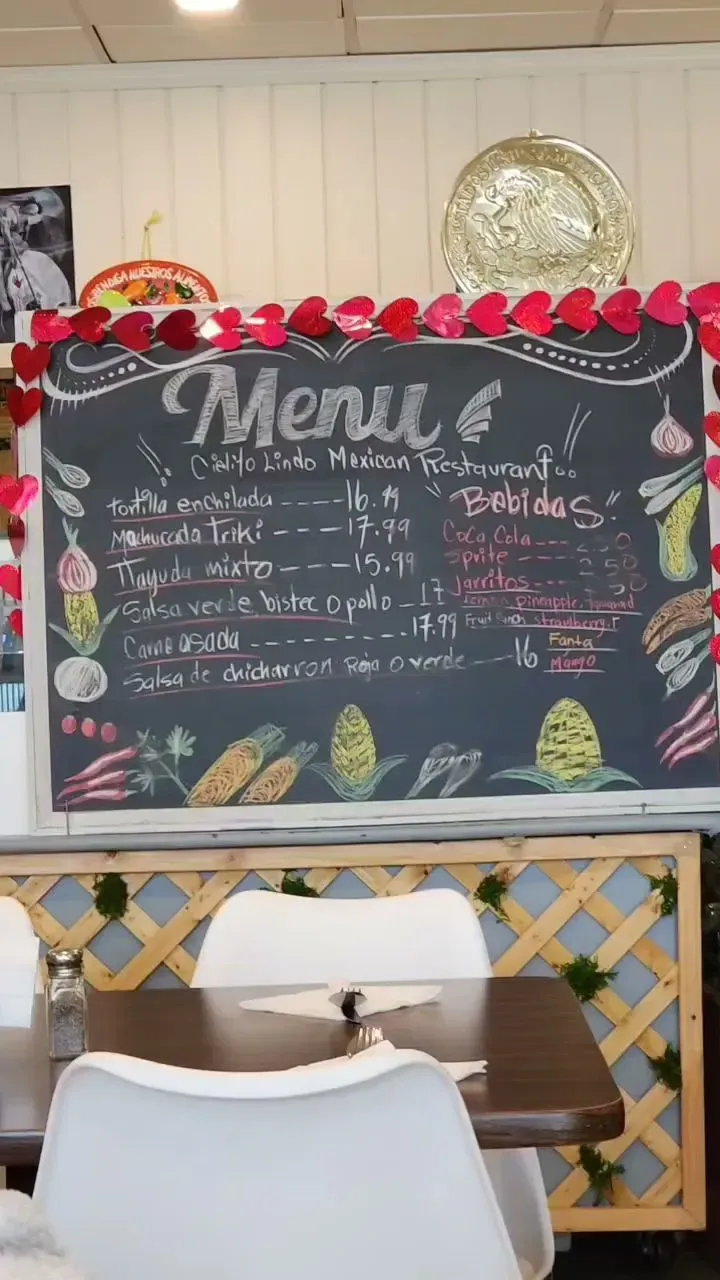 BENDIGA NUESTROS ALIMENTOS
Menu
Cielito Lindo Mexican Restaurant
tortilla enchilada ----16.99
Machucada Triki ----17.99
Tlayuda mixto ----15.99
Salsa verde, bistec o pollo --17
Carne asada ----------17.99
Salsa de chicharron Roja o verde ---16
"Bebidas"
Coca Cola--- 2.50
Sprite--- 2.50
Jarritos---
Lemon, pineapple,
Fruit Punch strawberry,
Fanta
Mango